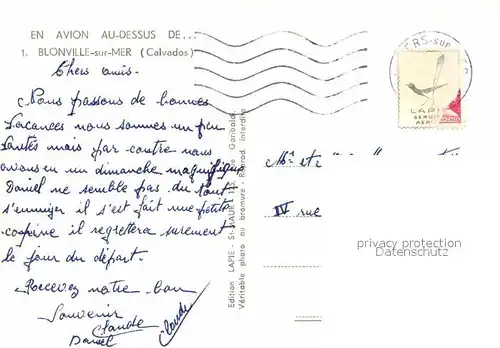 EN AVION AU-DESSUS DE...
1. BLONVILLE-sur-MER (Calvados)
Chers amis.
Nous passons de bonnes
vacances nous sommes un peu
mais par contre nous
avons eu un dimanche magnifique
Daniel ne semble pas du tout
s'ennuyer il s'est fait une petite
copine il regrettera surement
le jour du départ.
Recevez notre bon
Souvenir
Claude
Daniel
Edition LAPIE - St-MAUR
Véritable photo au bromure - Reprod. interdite
ERS-sur
LAPIE
SERVICE
AERIEN
IV rue
privacy protection
Datenschutz